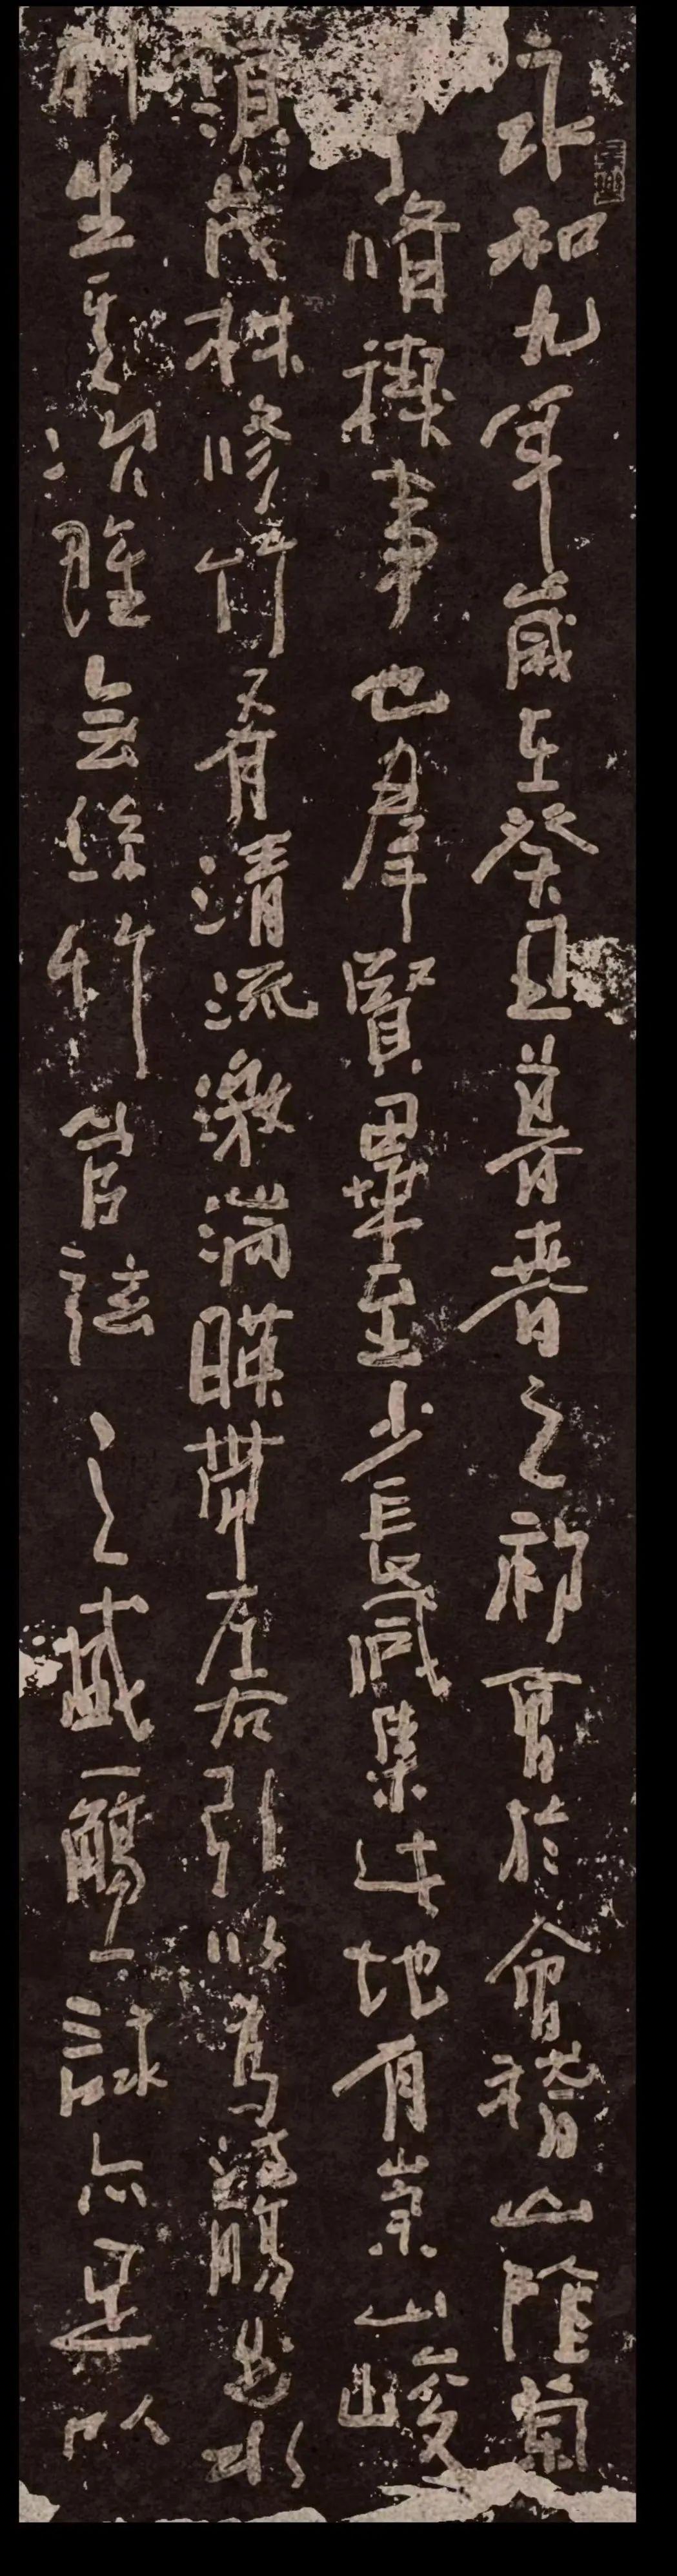 永和九年歲在癸丑暮春之初會於會稽山陰蘭
亭脩禊事也羣賢畢至少長咸集此地有崇山峻
領茂林修竹又有清流激湍暎帶左右引以為流觴曲水
列坐其次雖無絲竹管弦之盛一觴一詠亦足以